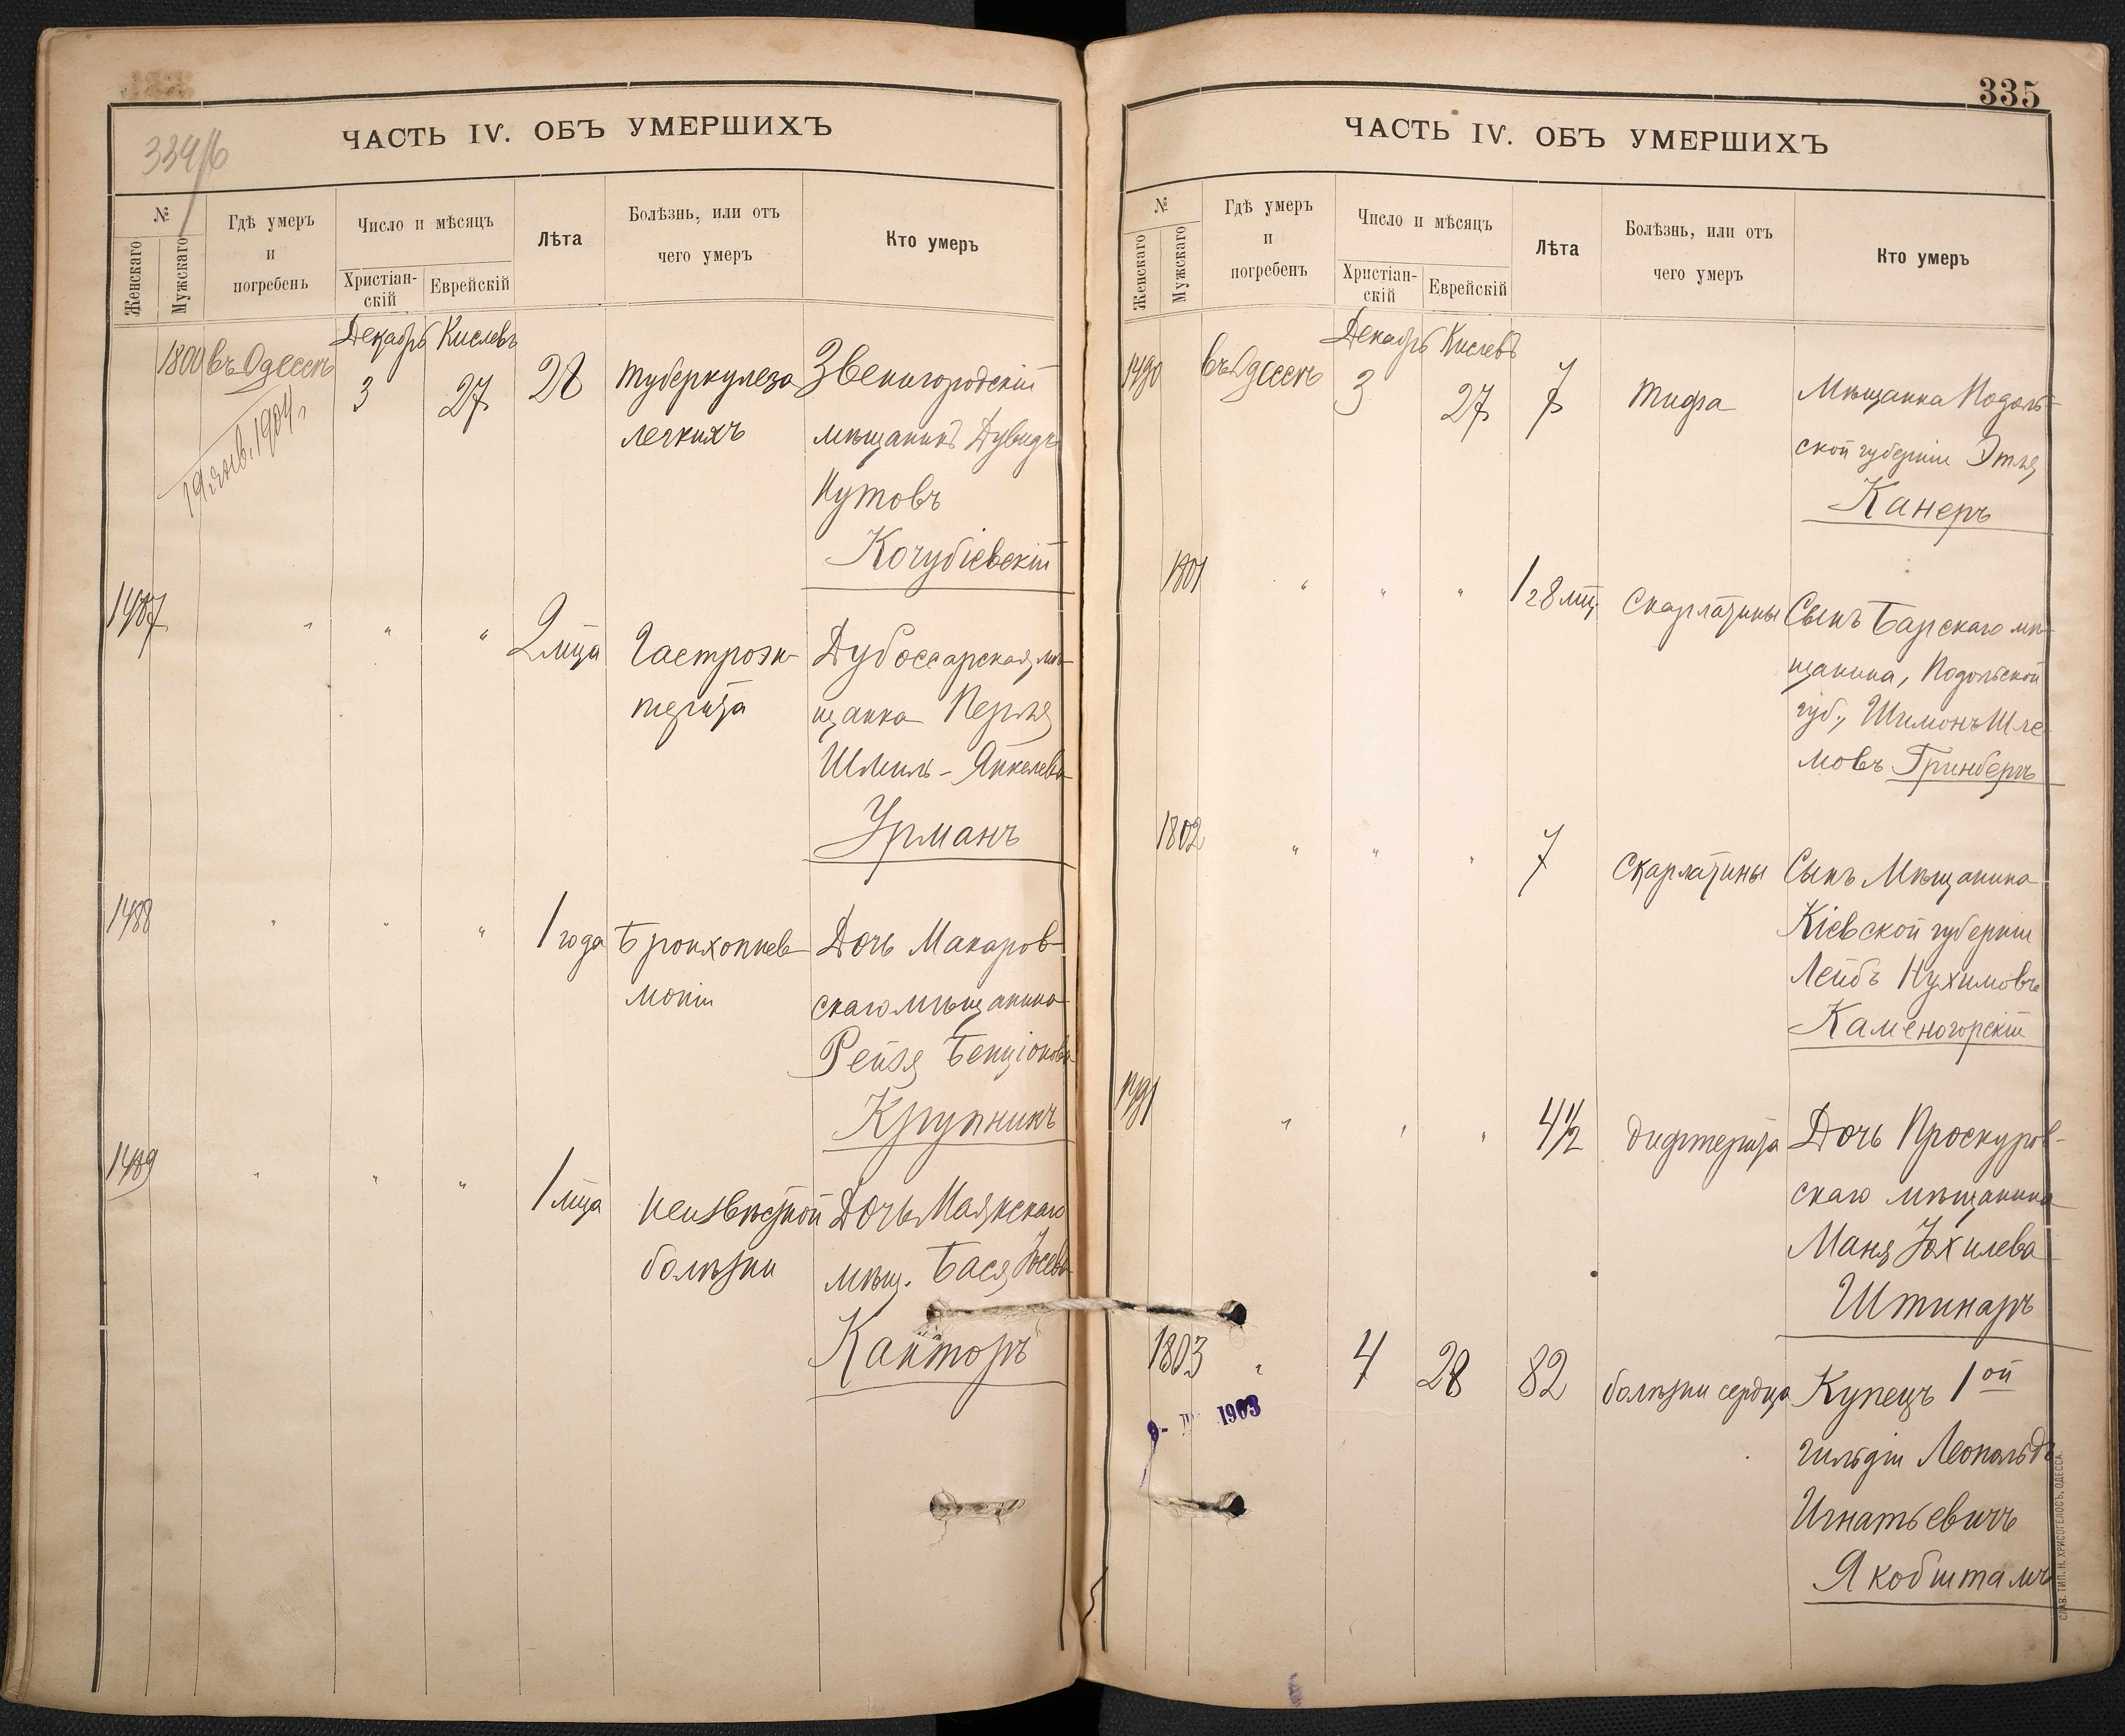 334/б
ЧАСТЬ IV. ОБЪ УМЕРШИХЪ
№
Женскаго
Мужскаго
Гдѣ умеръ
и
погребенъ
Число и мѣсяцъ
Христіан-
скій
Еврейскій
Лѣта
Болѣзнь, или отъ
чего умеръ
Кто умеръ
Декабрь Кислевъ
1800 въ Одессѣ 3 27 28 туберкулеза Звенигородскій
легкихъ мѣщанинъ Дувидъ
Нутовъ
Кочубіевскій
19 янв. 1904 г.
1487 " " " 2 мца Гастроэн- Дубоссарская мѣ-
терита щанка Перля
Шмиль-Янкелева
Урманъ
1488 " " " 1 года Бронхопнев- Дочь Макаров-
моніи скаго мѣщанина
Рейзя Бенціонова
Крупникъ
1489 " " " 1 мца неизвѣстной Дочь Маякскаго
болѣзни мѣщ. Бася Іосева
Канторъ
335
ЧАСТЬ IV. ОБЪ УМЕРШИХЪ
№
Женскаго
Мужскаго
Гдѣ умеръ
и
погребенъ
Число и мѣсяцъ
Христіан-
скій
Еврейскій
Лѣта
Болѣзнь, или отъ
чего умеръ
Кто умеръ
Декабрь Кислевъ
1490 въ Одессѣ 3 27 7 тифа Мѣщанка Подоль-
ской губерніи Этля
Канеръ
1801 " " " 1 г 8 мц. Скарлатины Сынъ Барскаго мѣ-
щанина, Подольской
губ., Шимонъ Шле-
мовъ Гринбергъ
1802 " " " 7 Скарлатины Сынъ Мѣщанина
Кіевской губерніи
Лейбъ Нухимовъ
Каменогорскій
1491 " " " 4 1/2 дифтерита Дочь Проскуров-
скаго мѣщанина
Маня Іохилева
Штинаръ
1803 " 4 28 82 болѣзни сердца Купецъ 1ой
гильдіи Леопольдъ
Игнатьевичъ
Якобштамъ
1903
СЛАВ. ТИП. Н. ХРИСОГЕЛОСЪ, ОДЕССА.